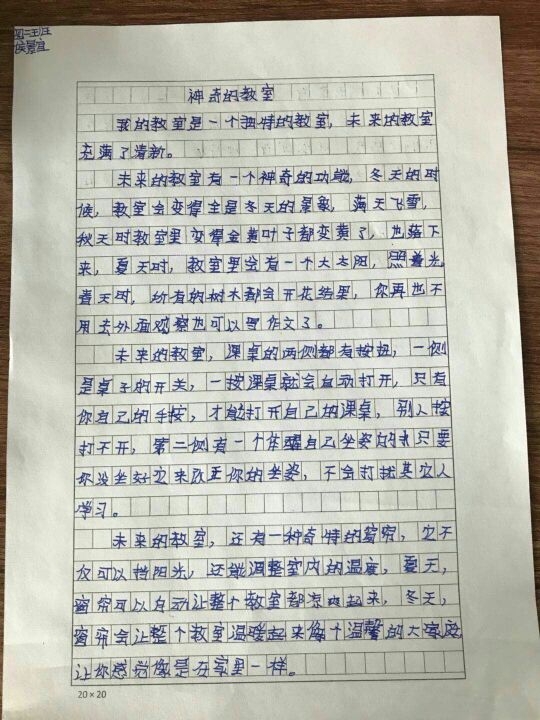 四二班
侯景宜
神奇的教室
我的教室是一个独特的教室，未来的教室
充满了清新。
未来的教室有一个神奇的功能，冬天的时
候，教室会变得全是冬天的景象，满天飞雪，
秋天时教室里变得金黄叶子都变黄了，也落下
来，夏天时，教室里会有一个大太阳，照着光
春天时，所有的树木都会开花结果，你再也不
用去外面观察也可以写作文了。
未来的教室，课桌的两侧都有按扭，一侧
是桌子的开关，一按课桌就会自动打开，只有
你自己的手按，才能打开自己的课桌，别人按
打不开，第二侧有一个体醒自己坐姿的只要
你没坐好它来改正你的坐姿，不会打扰其它人
学习。
未来的教室，还有一种奇特的窗帘，它不
仅可以挡阳光，还能调整室内的温度，夏天，
窗帘可以自动让整个教室都凉爽起来，冬天，
窗帘会让整个教室温暖起来像个温馨的大家庭
让你感觉像是在家里一样。
20×20